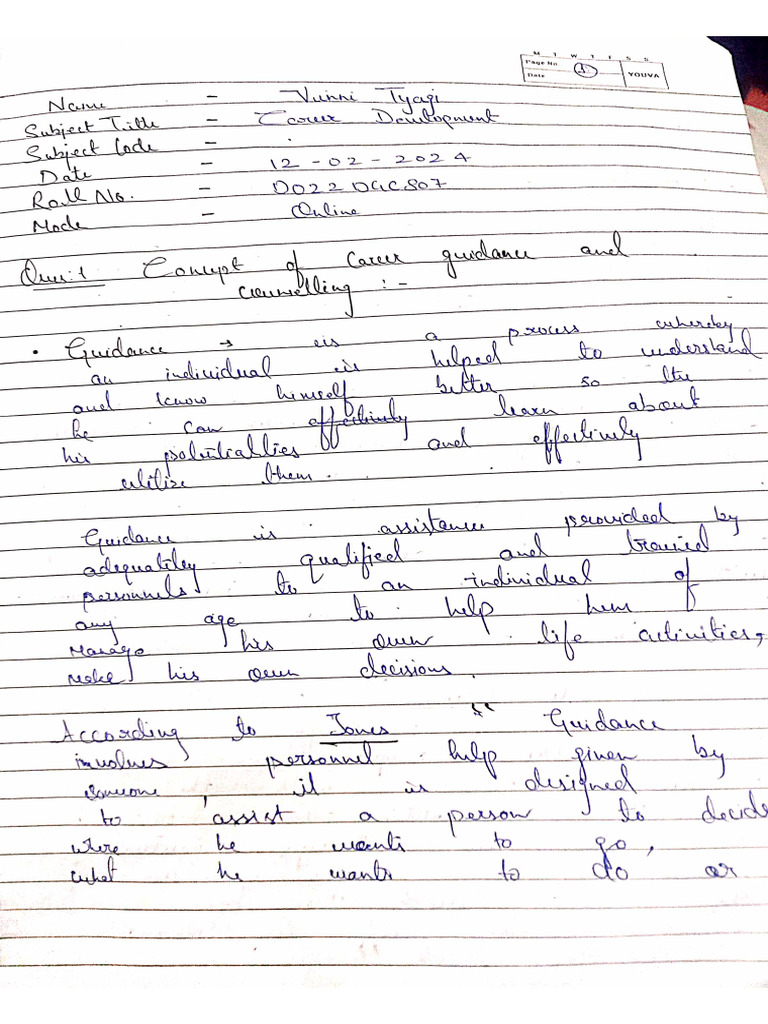 M T W T F S S
Page No 1
Date YOUVA
Name - Vunni Tyagi
Subject Title - Career Development
Subject Code - .
Date - 12-02-2024
Roll No. -
Mode - Online
Ques:1 Concept of Career guidance and
Counselling :-
• Guidance → is a process whereby
an individual is helped to understand
and know himself better so
he can effectively learn about
his potentialities and effectively
utilize them.
Guidance is assistance provided by
adequatley qualified and trained
personnels to an individual of
any age to help him
Manage his own life activities,
Make his own decisions.
According to Jones " Guidance
involves personnel help given by
someone, it is designed
to assist a person to decide
where he wants to go,
what he wants to do or